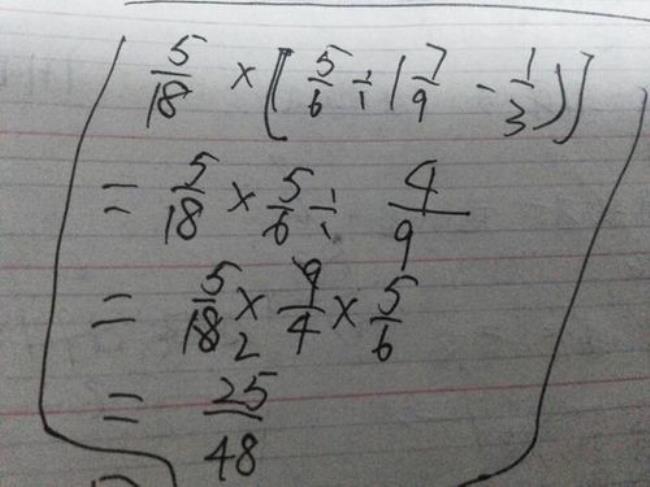 5/18 × [5/6 ÷ (7/9 - 1/3)]
= 5/18 × 5/6 ÷ 4/9
= 5/18 2 × 9/4 × 5/6
= 25/48